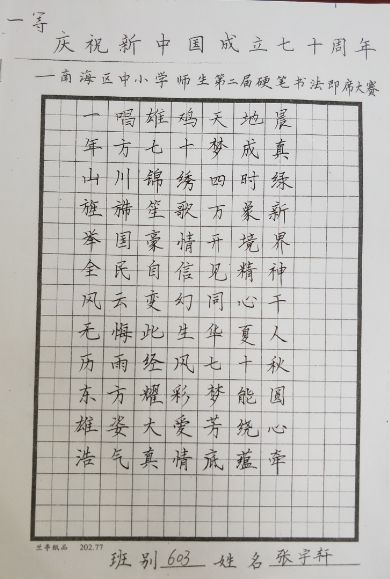 一等
庆祝新中国成立七十周年
—南海区中小学师生第二届硬笔书法即席大赛
一唱雄鸡天地晨
年方七十梦成真
山川锦绣四时绿
旌旆笙歌万象新
举国豪情开境界
全民自信见精神
风云变幻同心干
无悔此生华夏人
历雨经风七十秋
东方耀彩梦能圆
雄姿大爱芳绕心牵
浩气真情底蕴
兰亭纸品 202.77
班别 603 姓名 张宇轩